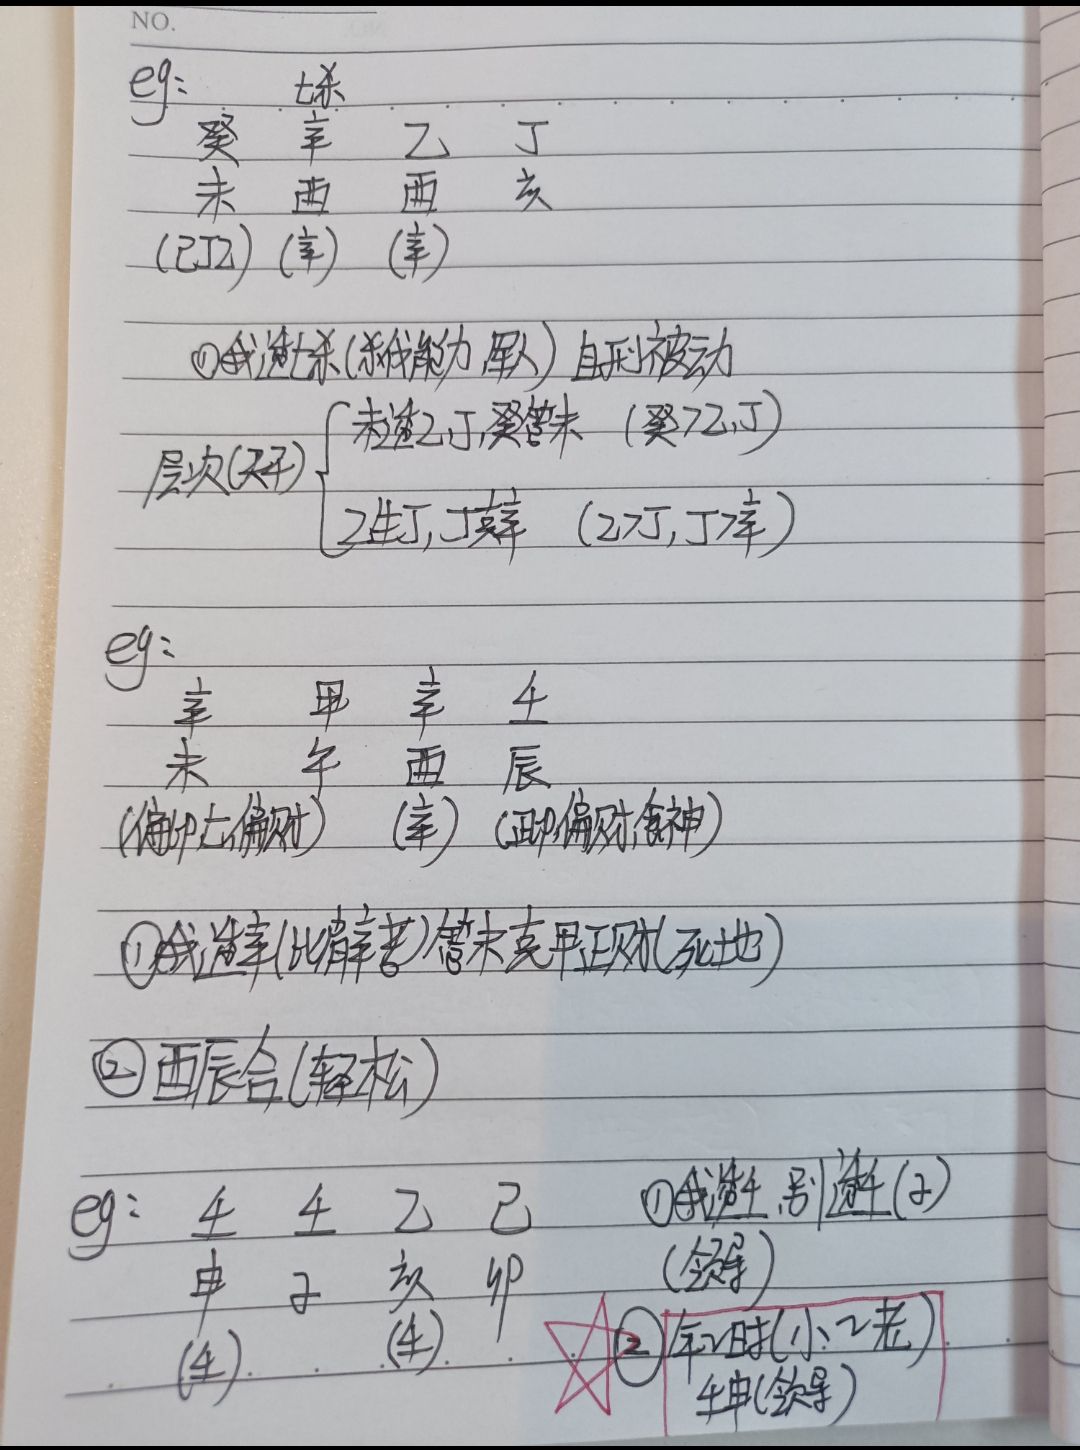 NO.
eg: 七杀
癸 辛 乙 丁
未 酉 酉 亥
(己丁乙) (辛) (辛)
①我透七杀(杀我能力,军人) 自刑被动
层次(天干)
未透乙,丁,癸管未 (癸>乙,丁)
乙生丁,丁克辛 (乙>丁,丁>辛)
eg:
辛 甲 辛 壬
未 午 酉 辰
(偏印,七,偏财) (辛) (正印,偏财,食神)
①我透辛(比肩辛苦)管未克甲正财(死地)
②酉辰合(轻松)
eg: 壬 壬 乙 己
申 子 亥 卯
(壬) (壬)
①我透壬,别透壬(子)
(领导)
②年~时(小~老)
壬申(领导)